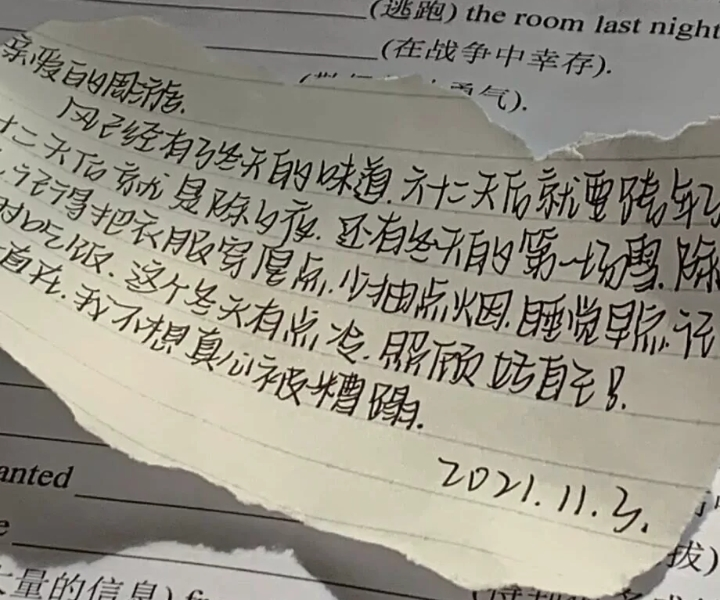 (逃跑) the room last night
(在战争中幸存).
勇气).
亲爱的周
风已经有了冬天的味道.六十二天后就要跨年了
十二天后就是除夕夜.还有冬天的第一场雪.除
记得把衣服穿厚点.少抽点烟.睡觉早点.记
时吃饭.这个冬天有点冷.照顾好自己.
直在.我不想真心被糟蹋.
2021.11.3.
anted
拔)
大量的信息)